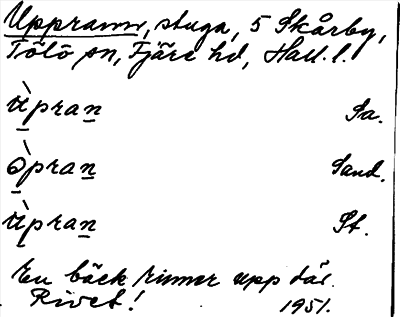 Upprann, stuga, 5 Skårby,
Tölö sn, Fjäre hd, Hall. l.
ùpran Sa.
òpran Sand.
ùpran St.
En bäck rinner upp där.
Rivet! 1951.